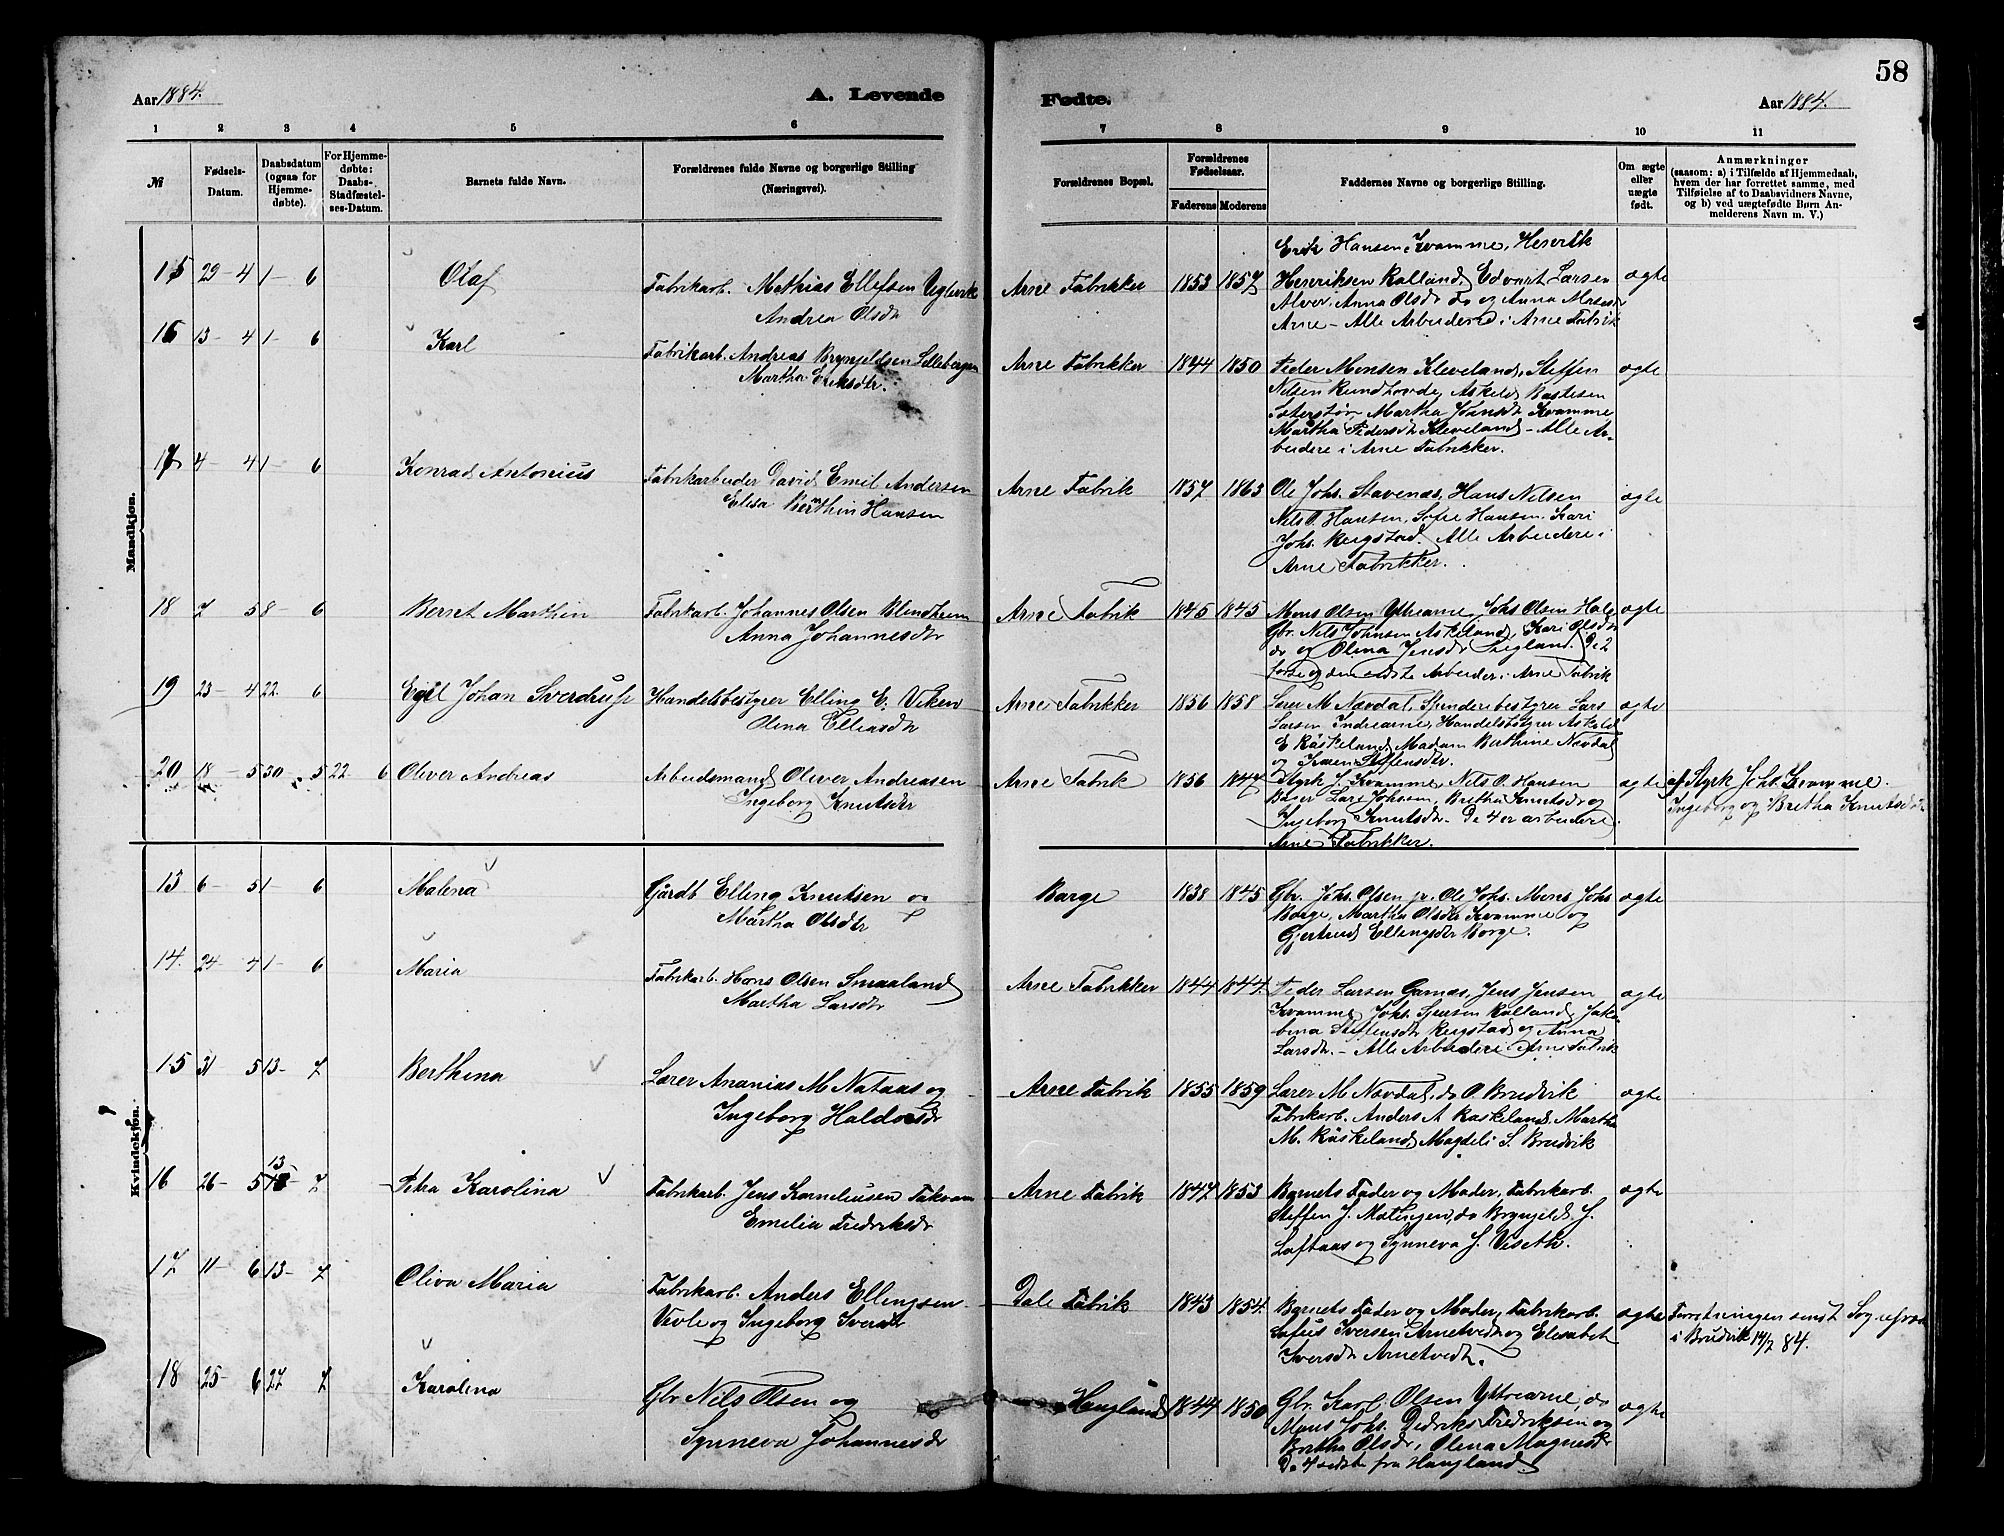 58
Aar 1884.
A. Levende
Fødte.
Aar 1884.
1 2 3 4 5 6 7 8 9 10 11
№
Fødsels-
Datum.
Daabsdatum
(ogsaa for
Hjemme-
døbte).
For Hjemme-
døbte:
Daabs-
Stadfæstel-
ses-Datum.
Barnets fulde Navn.
Forældrenes fulde Navne og borgerlige Stilling
(Næringsvei).
Forældrenes Bopæl.
Forældrenes
Fødselsaar.
Faderens Moderens
Faddernes Navne og borgerlige Stilling.
Om ægte
eller
uægte
født.
Anmærkninger
(saasom: a) i Tilfælde af Hjemmedaab,
hvem der har forrettet samme, med
Tilføielse af to Daabsvidners Navne,
og b) ved uægtefødte Børn An-
melderens Navn m. V.)
Mandkjøn.
15 29-4 1-6 Olaf
Fabrikarb. Mathias Ellefsen
Andrea Olsdtr
Arne Fabrikker 1853 1857
Erik Hansen Kvamme, Henrik
Henriksen Kalland, Edvart Larsen
Alver. Anna Olsdtr do og Anna
Arne - Alle Arbeidere i Arne Fabrik
ægte
16 13-4 1-6 Karl
Fabrikarb. Andreas Brynjeldsen
Martha Eriksdtr.
Arne Fabrikker 1844 1850
Peder Monsen Kleveland, Steffen
Nilsen Rundhovde, Askeld Bastesen
Martha Johnsdtr Kvamme
Martha Pedersdtr Kleveland - Alle Ar-
beidere i Arne Fabrikker.
ægte
17 4-4 1-6 Konrad Antonius
Fabrikarbeider David Emil Andersen
Elisa Berthin Hansen
Arne Fabrik 1857 1863
Ole Johs. Stavenæs, Hans Nilsen
Nils O. Hansen, Sofie Hansen. Kari
Johs. Bergstad. Alle Arbeidere i
Arne Fabrikker.
ægte
18 7-5 8-6 Bernt Marthin
Fabrikarb. Johannes Olsen Blindheim
Anna Johannesdtr
Arne Fabrik 1845 1845
Mons Olsen Ytrearne, Johs Olsen
Gbr. Nils Johnsen Askeland, Kari Olsdtr
do og Olina Jensdtr De 2
første og den sidste Arbeider i Arne Fabrik
ægte
19 23-4 22.6 Egil Johan Sverdrup
Handelsbestyrer Elling E. Viken
Olena Elliasdtr
Arne Fabrikker 1856 1858
Lærer M Navdal, Spinderibestyrer Lars
Larsen Indrearne, Handelsbestyrer Askeld
E Raskeland, Madam Berthine Navdal
og Karen Steffensdtr.
ægte
20 18-5 30.5 22-6 Oliver Andreas
Arbeidsmand Oliver Andreasen
Ingeborg Knutsdtr
Arne Fabrik 1856 1847
Styrk J. Kvamme, Nils O. Hansen
Bager Lars Johnsen, Bretha Knutsdtr og
Ingeborg Knutsdtr - De 4 er arbeidere
Arne Fabrikker.
ægte
af Styrk Johs. Kvamme.
Ingeborg og Bretha Knutsdtr
Kvindekjøn.
13 6-5 1-6 Malena
Gårdb Elling Knutsen og
Martha Olsdtr
Borge 1838 1845
Gbr. Johs. Olsen jr. Ole Johs. Mons Johs
Borge, Martha Olsdtr Kvamme og
Gjertrud Ellingsdtr Borge.
ægte
14. 24-4 1-6 Maria
Fabrikarb. Hans Olsen Smaaland
Martha Larsdtr
Arne Fabrikker 1844 1844.
Peder Larsen Garnæs, Jens Jensen
Kvamme, Johs. Sjursen Kalland, Jako-
bina Steffensdtr Bergstad og Anna
Larsdtr. - Alle Arbeidere i Arne Fabrik
ægte
15 31 5 13-7 Berthina
Lærer Ananias M Nataas og
Ingeborg Haldorsdtr
Arne Fabrik 1855 1859
Lærer M Navdal, do O. Brudvik
Fabrikarb. Anders A Raskeland, Martha
M. Raskeland, Magdeli S. Brudvik
ægte
16 26-5 13-7 Petra Karolina
Fabrikarb. Jens Korneliusen Takvam
Emelia Fredriksdtr
Arne Fabrik 1847 1853
Barnets Fader og Moder, Fabrikarb.
Steffen J. Motingen, do Brynjeld J.
Loftaas og Synneva J. Viseth.
ægte
17 11-6 13-7 Oliva Maria
Fabrikarb. Anders Ellingsen
Vevle og Ingeborg Iversdtr
Dale Fabrik 1843 1854.
Barnets Fader og Moder, Fabrikarb.
Sofus Iversen Arnetvedt og Elisabet
Iversdtr Arnetvedt.
ægte
Forretningen sendt
i Brudvik 14/7 84.
18 25-6 27 7 Karolina
Gbr Nils Olsen og
Synneva Johannesdtr
Haugland 1844 1850
Gbr. Karl Olsen Ytrearne, do
Mons Johs. Didrik Fredriksen og
Bretha Olsdtr, Olena Magnesdtr
De 4 sidste fra Haugland
ægte